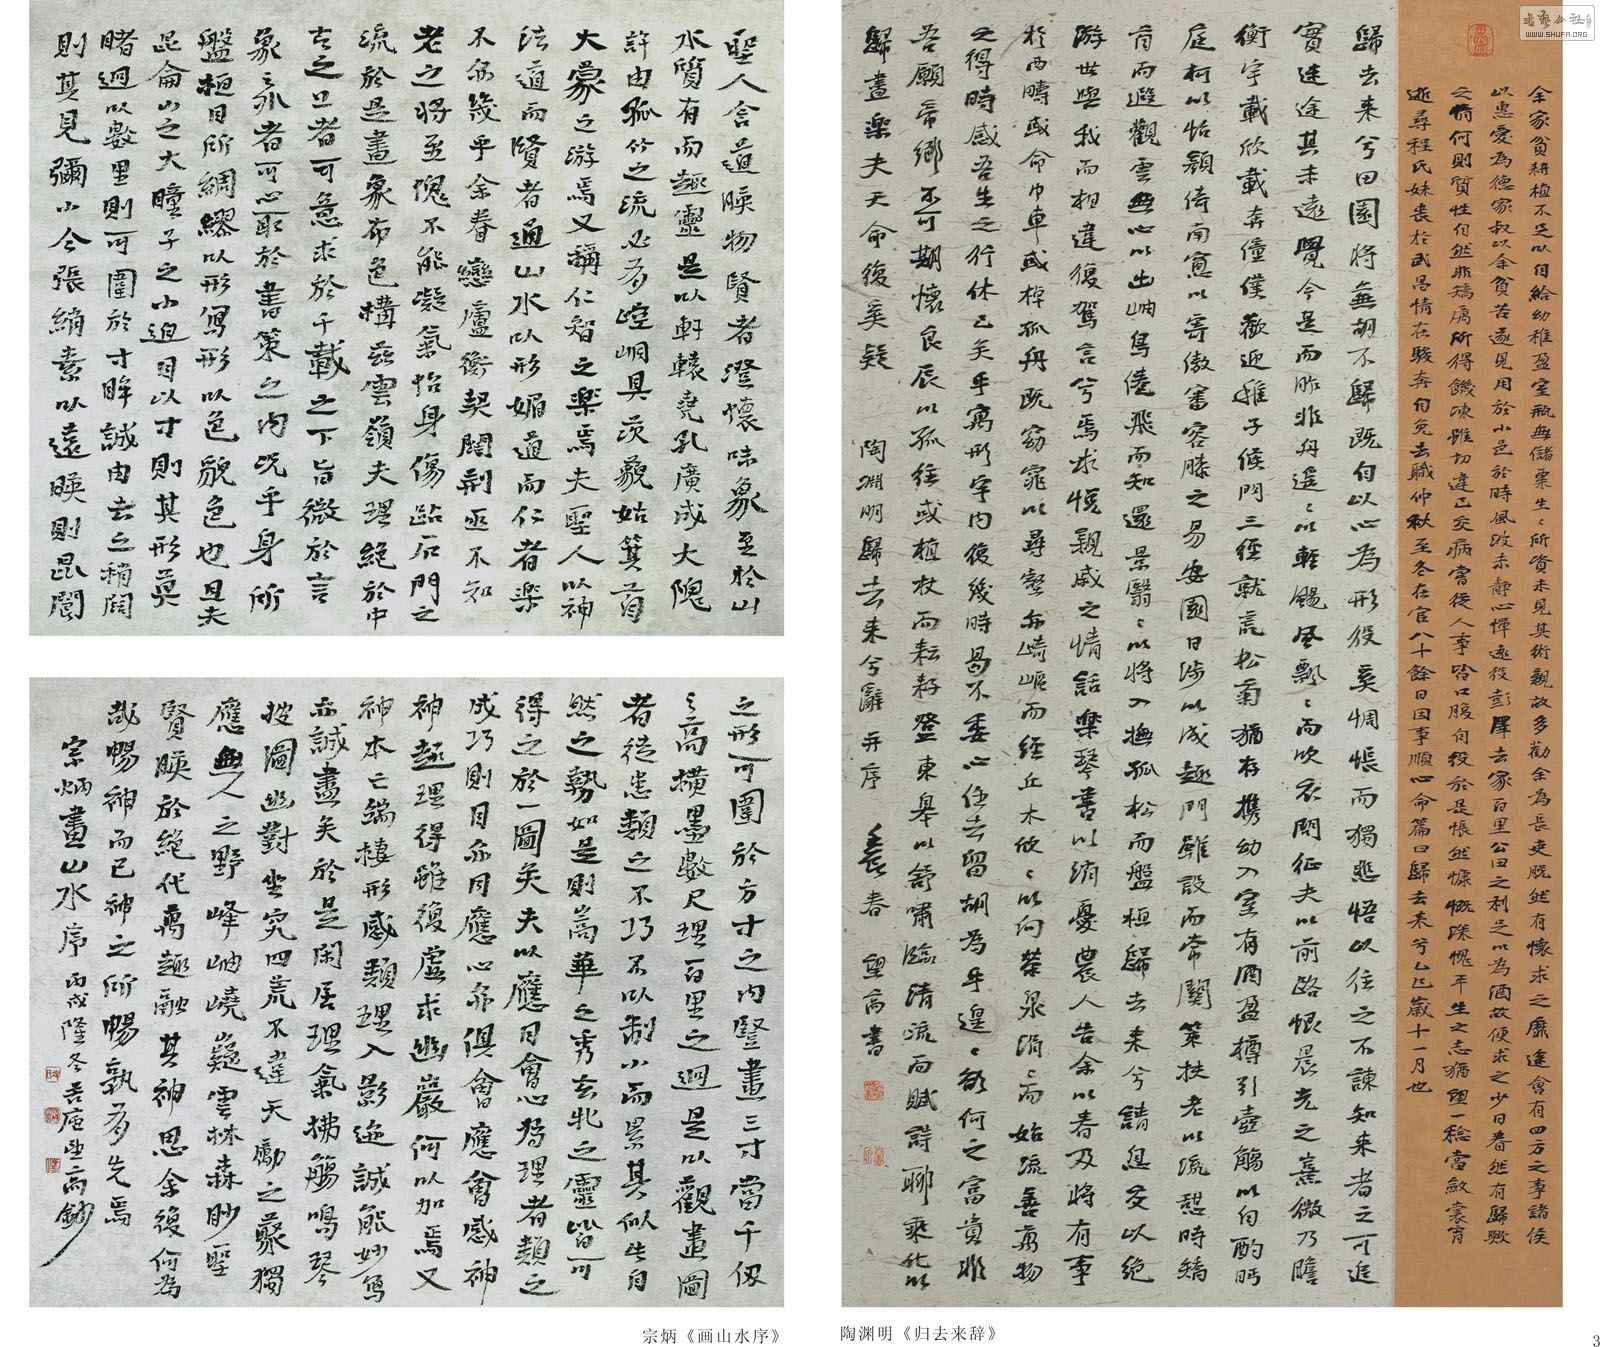 聖人含道暎物賢者澄懷味象至於山
水質有而趣靈是以軒轅堯孔廣成大隗
許由孤竹之流必有崆峒具茨藐姑箕首
大蒙之游焉又稱仁智之樂焉夫聖人以神
法道而賢者通山水以形媚道而仁者樂
不亦幾乎余眷戀廬衡契闊荊巫不知
老之將至愧不能凝氣怡身傷跕石門之
流於是畫象布色構茲雲嶺夫理絕於中
古之上者可意求於千載之下旨微於言
象之外者可心取於書策之内況乎身所
盤桓目所綢繆以形寫形以色貌色也且夫
昆侖山之大瞳子之小迫目以寸則其形莫
睹迥以數里則可圍於寸眸誠由去之稍闊
則其見彌小今張綃素以遠暎則昆閬
之形可圍於方寸之内豎畫三寸當千仞
之高橫墨數尺理百里之迥是以觀畫圖
者徒患類之不巧不以制小而累其似此自
然之勢如是則嵩華之秀玄牝之靈皆可
得之於一圖矣夫以應目會心為理者類之
成巧則目亦同應心亦俱會應會感神
神超理得雖復虛求幽巖何以加焉又
神本亡端棲形感類理入影迹誠能妙寫
亦誠盡矣於是閑居理氣拂觴鳴琴
披圖幽對坐究四荒不違天勵之藂獨
應無人之野峰岫嶢嶷雲林森眇聖
賢暎於絕代萬趣融其神思余復何為
哉暢神而已神之所暢孰有先焉
宗炳畫山水序 丙戌隆冬 庵望高鈔
宗炳《画山水序》
余家貧耕植不足以自給幼稚盈室瓶無儲粟生〻所資未見其術親故多勸余為長吏脱然有懷求之靡途會有四方之事諸侯
以惠愛為德家叔以余貧苦遂見用於小邑於時風波未靜心憚遠役彭澤去家百里公田之利足以為酒故便求之少日眷然有歸歟
之情何則質性自然非矯厲所得饑凍雖切違己交病嘗從人事皆口腹自役於是悵然慷慨深愧平生之志猶望一稔當斂裳宵
逝尋程氏妹喪於武昌情在駿奔自免去職仲秋至冬在官八十餘日因事順心命篇曰歸去来兮乙巳歲十一月也
歸去来兮田園將蕪胡不歸既自以心為形役奚惆悵而獨悲悟以往之不諫知来者之可追
實迷途其未遠覺今是而昨非舟遥〻以輕颺風飄〻而吹衣問征夫以前路恨晨光之熹微乃瞻
衡宇載欣載奔僮僕歡迎稚子候門三徑就荒松菊猶存携幼入室有酒盈樽引壺觴以自酌眄
庭柯以怡顏倚南窗以寄傲審容膝之易安園日涉以成趣門雖設而常關策扶老以流憩時矯
首而遐觀雲無心以出岫鳥倦飛而知還景翳〻以將入撫孤松而盤桓歸去来兮請息交以絕
游世與我而相違復駕言兮焉求悦親戚之情話樂琴書以消憂農人告余以春及將有事
於西疇或命巾車或棹孤舟既窈窕以尋壑亦崎嶇而經丘木欣〻以向榮泉涓〻而始流善萬物
之得時感吾生之行休已矣乎寓形宇内復幾時曷不委心任去留胡為乎遑〻欲何之富貴非
吾願帝鄉不可期懷良辰以孤往或植杖而耘耔登東皋以舒嘯臨清流而賦詩聊乘化以
歸盡樂夫天命復奚疑 陶淵明歸去来兮辭并序 春 望高書
陶渊明《归去来辞》
书艺公社
WWW.SHUFR.ORG
3